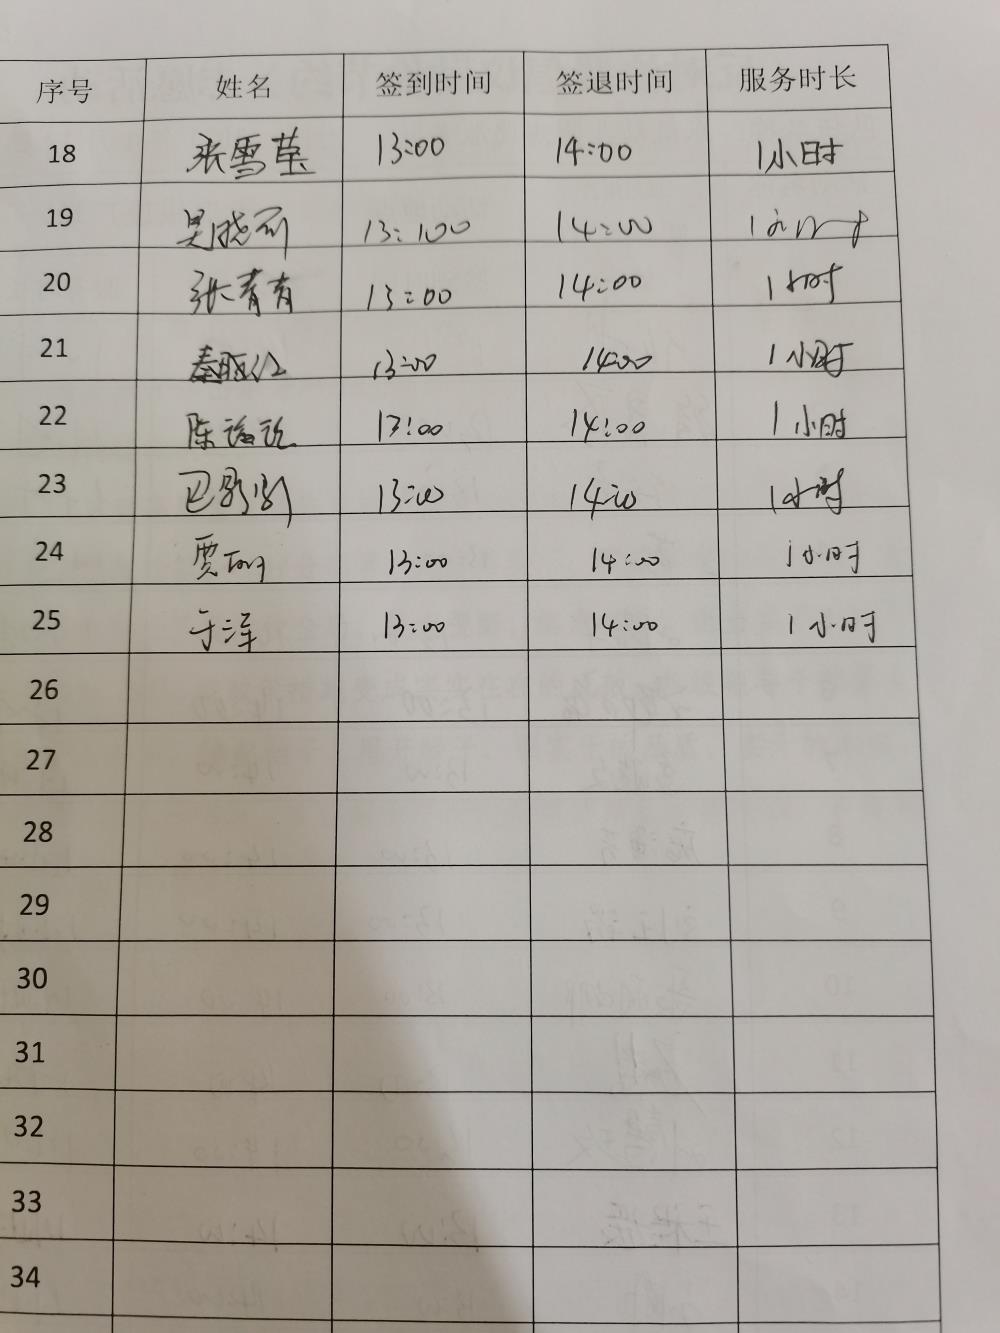 序号 姓名 签到时间 签退时间 服务时长
18 张雪莹 13:00 14:00 1小时
19 吴晓丽 13:100 14:00 1小时
20 张青青 13:00 14:00 1小时
21 秦 13:00 14:00 1小时
22 陈 13:00 14:00 1小时
23 巴 13:00 14:00 1小时
24 贾 13:00 14:00 1小时
25 于泽 13:00 14:00 1小时
26
27
28
29
30
31
32
33
34